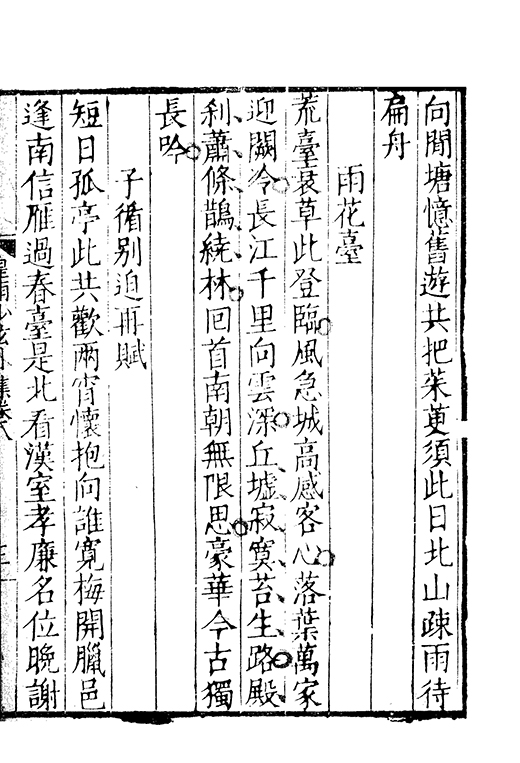 向閒塘憶舊遊共把茱萸須此日北山疎雨待
扁舟
雨花臺
荒臺衰草此登臨風急城高感客心落葉萬家
迎闕冷長江千里向雲深丘墟寂寞苔生路殿
利蕭條鵲繞林回首南朝無限思豪華今古獨
長吟
子循别迫再賦
短日孤亭此共歡兩宵懷抱向誰寛梅開臘邑
逢南信雁過春臺是北看漢室孝廉名位晚謝